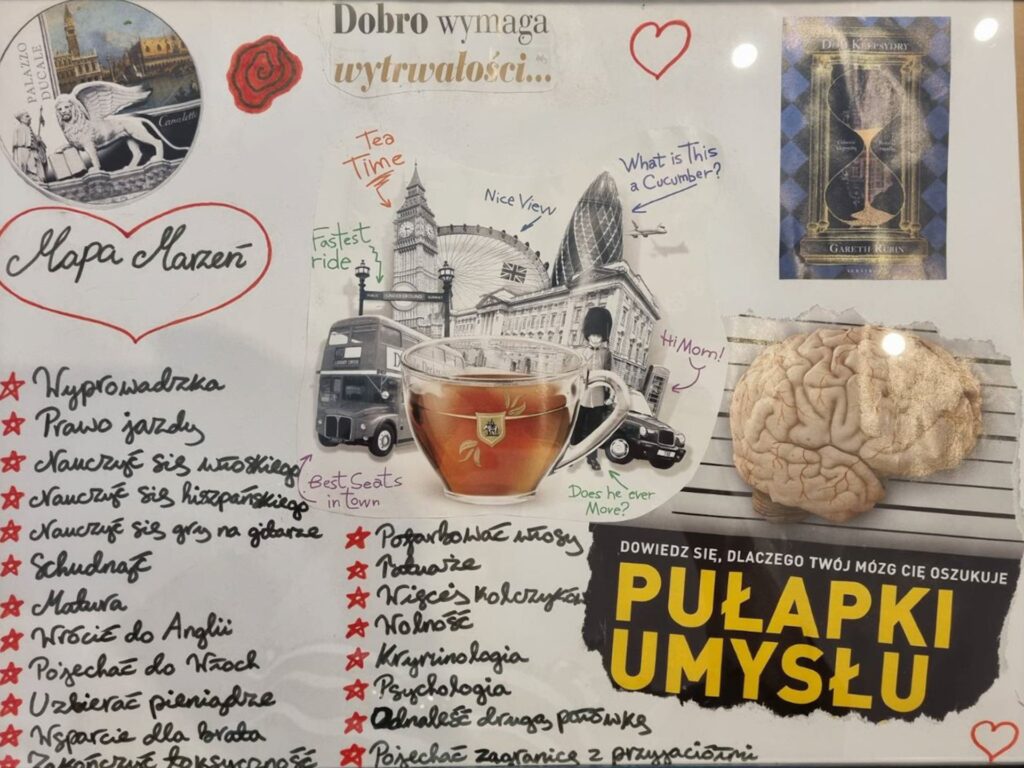 PALAZZO
DUCALE
Canaletto
Dobro wymaga
wytrwałości...
DOM KLEPSYDRY
GARETH RUBIN
Mapa Marzeń
Tea
Time
What is This
a Cucumber?
Nice View
Fastest
ride
UNDERGROUND
Hi Mom!
Best Seats
in town
Does he ever
Move?
Wyprowadzka
Prawo jazdy
Nauczyć się włoskiego
Nauczyć się hiszpańskiego
Nauczyć się gry na gitarze
Schudnąć
Matura
Wrócić do Anglii
Pojechać do Włoch
Uzbierać pieniądze
Wsparcie dla brata
Zakończyć toksyczność
Pofarbować włosy
Tatuaże
Więcej kolczyków
Wolność
Kryminologia
Psychologia
Odnaleść drugą parówkę
Pojechać zagranicę z przyjaciółmi
DOWIEDZ SIĘ, DLACZEGO TWÓJ MÓZG CIĘ OSZUKUJE
PUŁAPKI
UMYSŁU